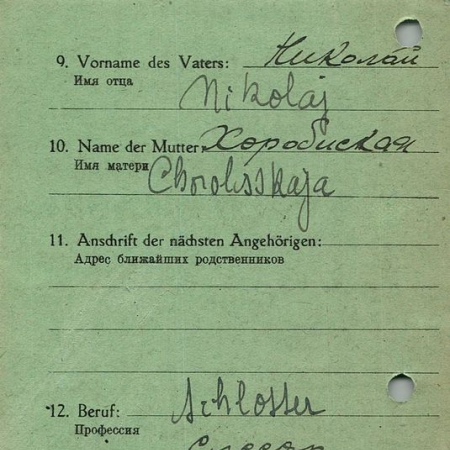 9. Vorname des Vaters: Николай
Имя отца
Nikolaj
10. Name der Mutter: Хоробиская
Имя матери Chorobsskaja
11. Anschrift der nächsten Angehörigen:
Адрес ближайших родственников
12. Beruf: Schlosser
Профессия
Слесарь